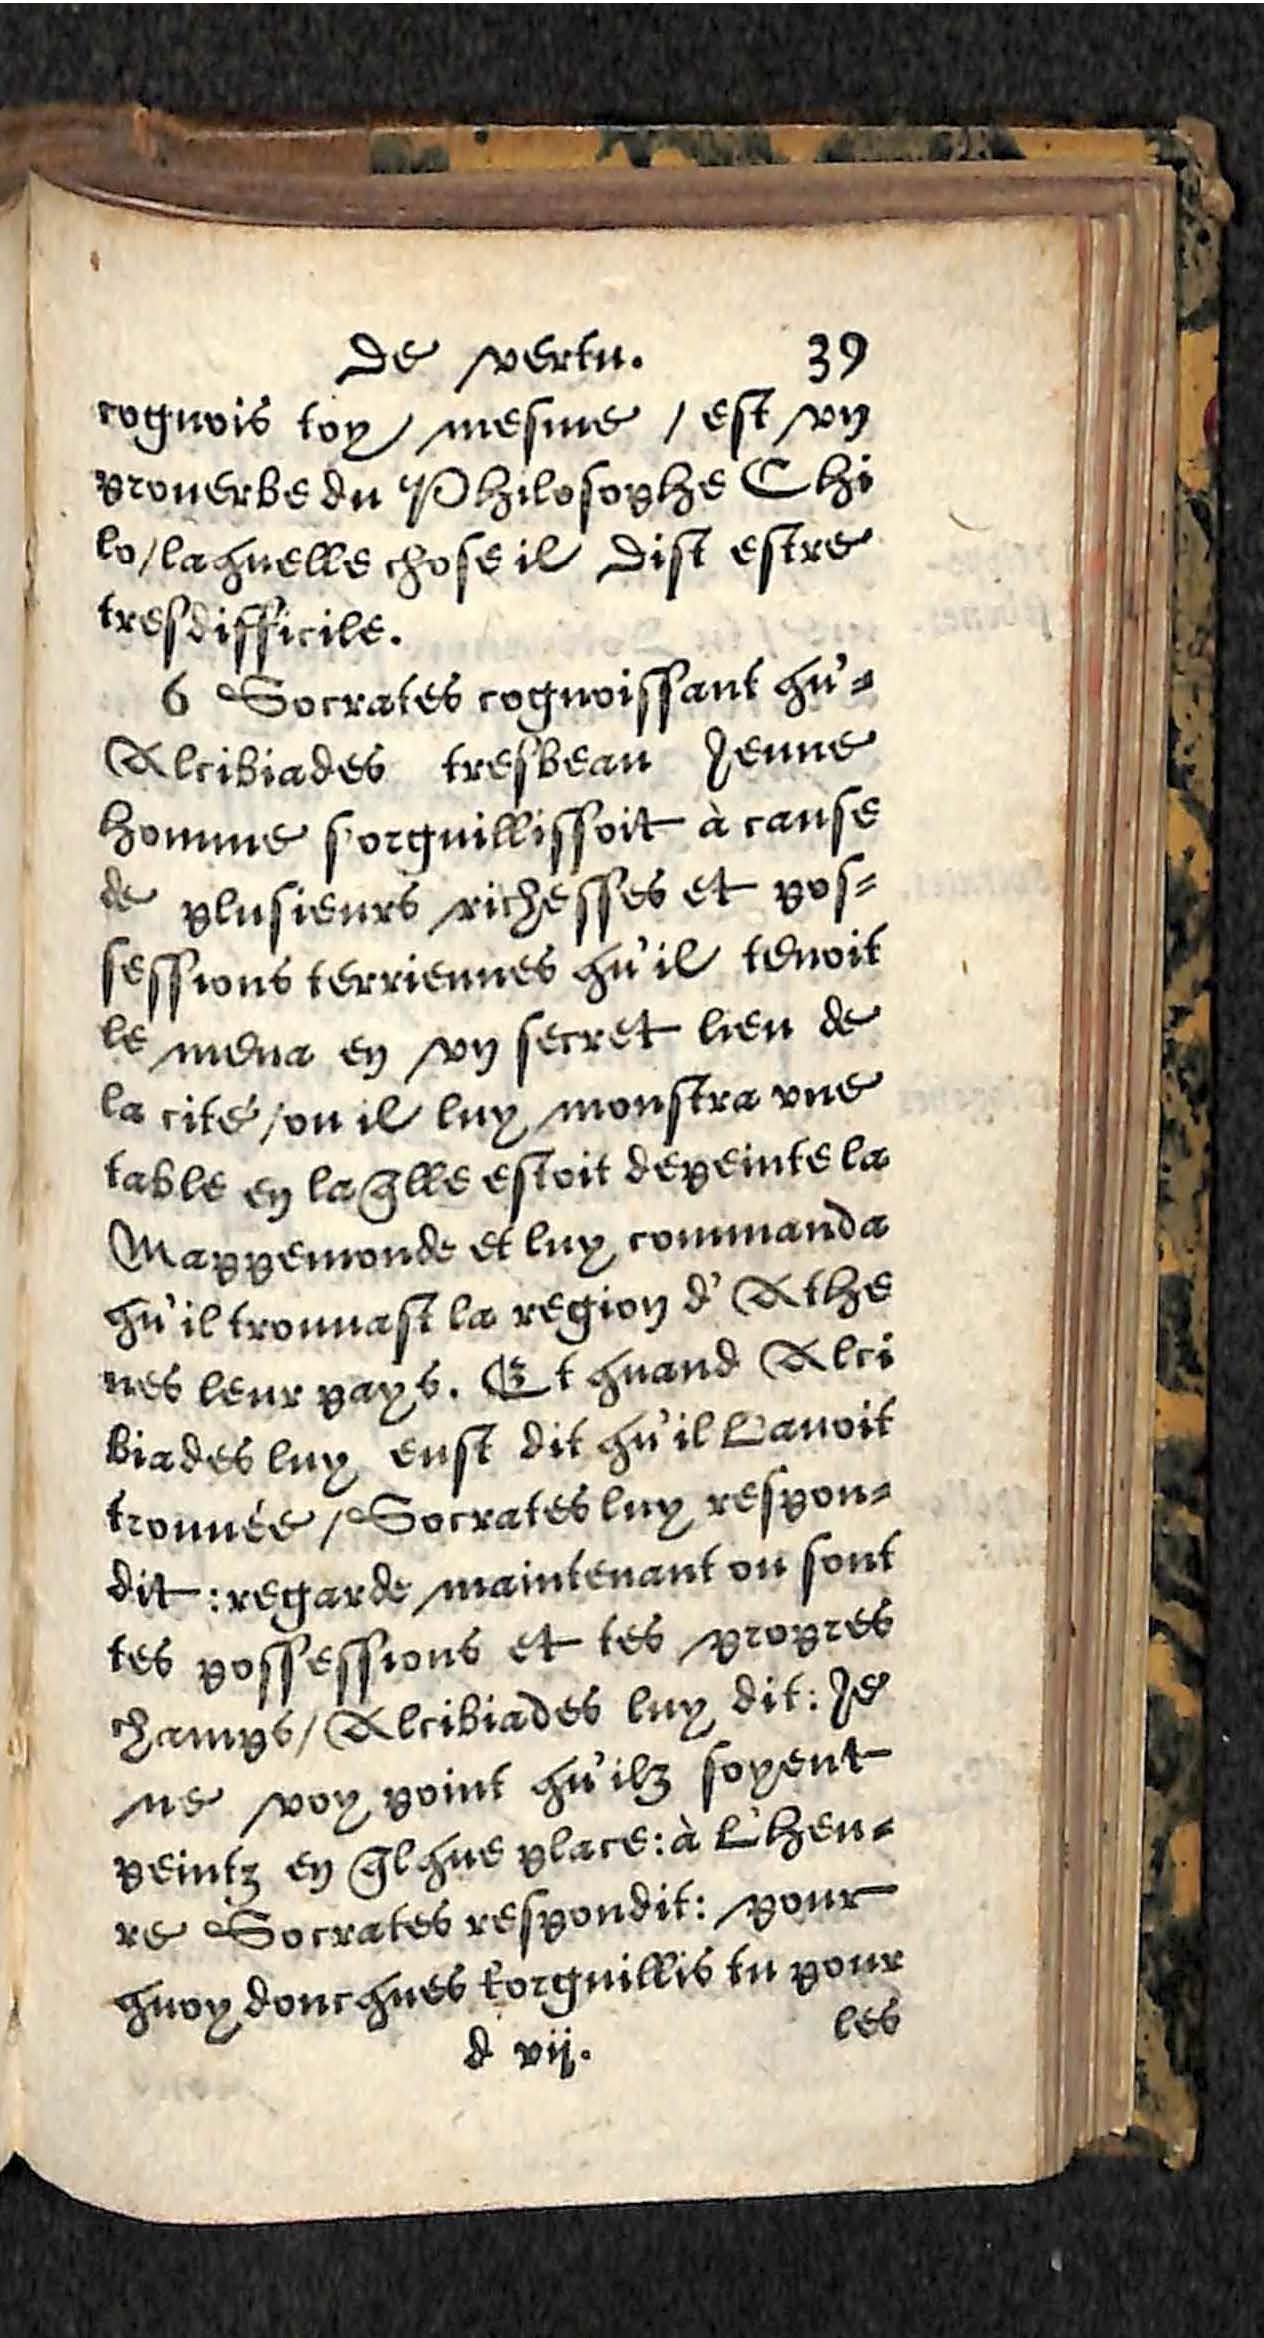 De vertu. 39
cognois toy mesme / est vn
prouerbe du Philosophe Chi
lo / laquelle chose il dist estre
tresdifficile.
6 Socrates cognoissant qu'-
Alcibiades tresbeau Jeune
homme s'orguillissoit à cause
de plusieurs richesses et pos-
sessions terriennes qu'il tenoit
le mena en vn secret lieu de
la cité / ou il luy monstra vne
table en laq̄lle estoit depeinte la
Mappemonde et luy commanda
qu'il trouuast la region d'Athe
nes leur pays. Et quand Alci
biades luy eust dit qu'il l'auoit
trouuée / Socrates luy respon-
dit : regarde maintenant ou sont
tes possessions et tes propres
champs / Alcibiades luy dit : Je
ne voy point qu'ilz soyent
peintz en q̄lque place : à l'heu-
re Socrates respondit : pour
quoy doncques t'orguillis tu pour
d vij. les